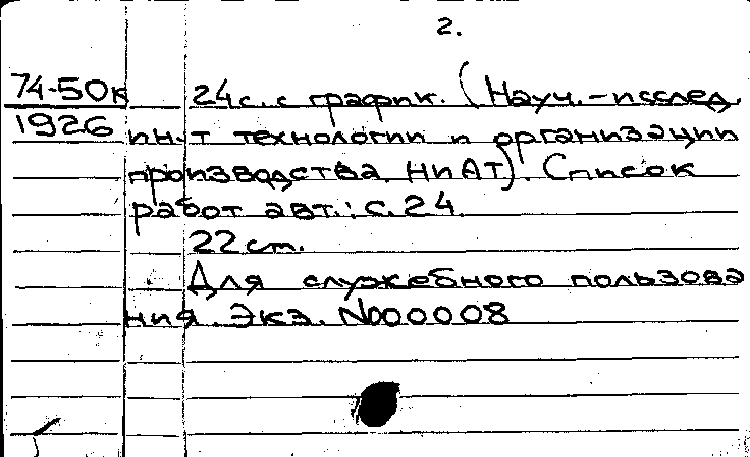 2.
74-50к 24 с. с график. (Науч.-исслед.
1926 ин-т технологии и организации
производства НИАТ). Список
работ авт.: с. 24.
22 см.
Для служебного пользова
ния. Экз. №000008